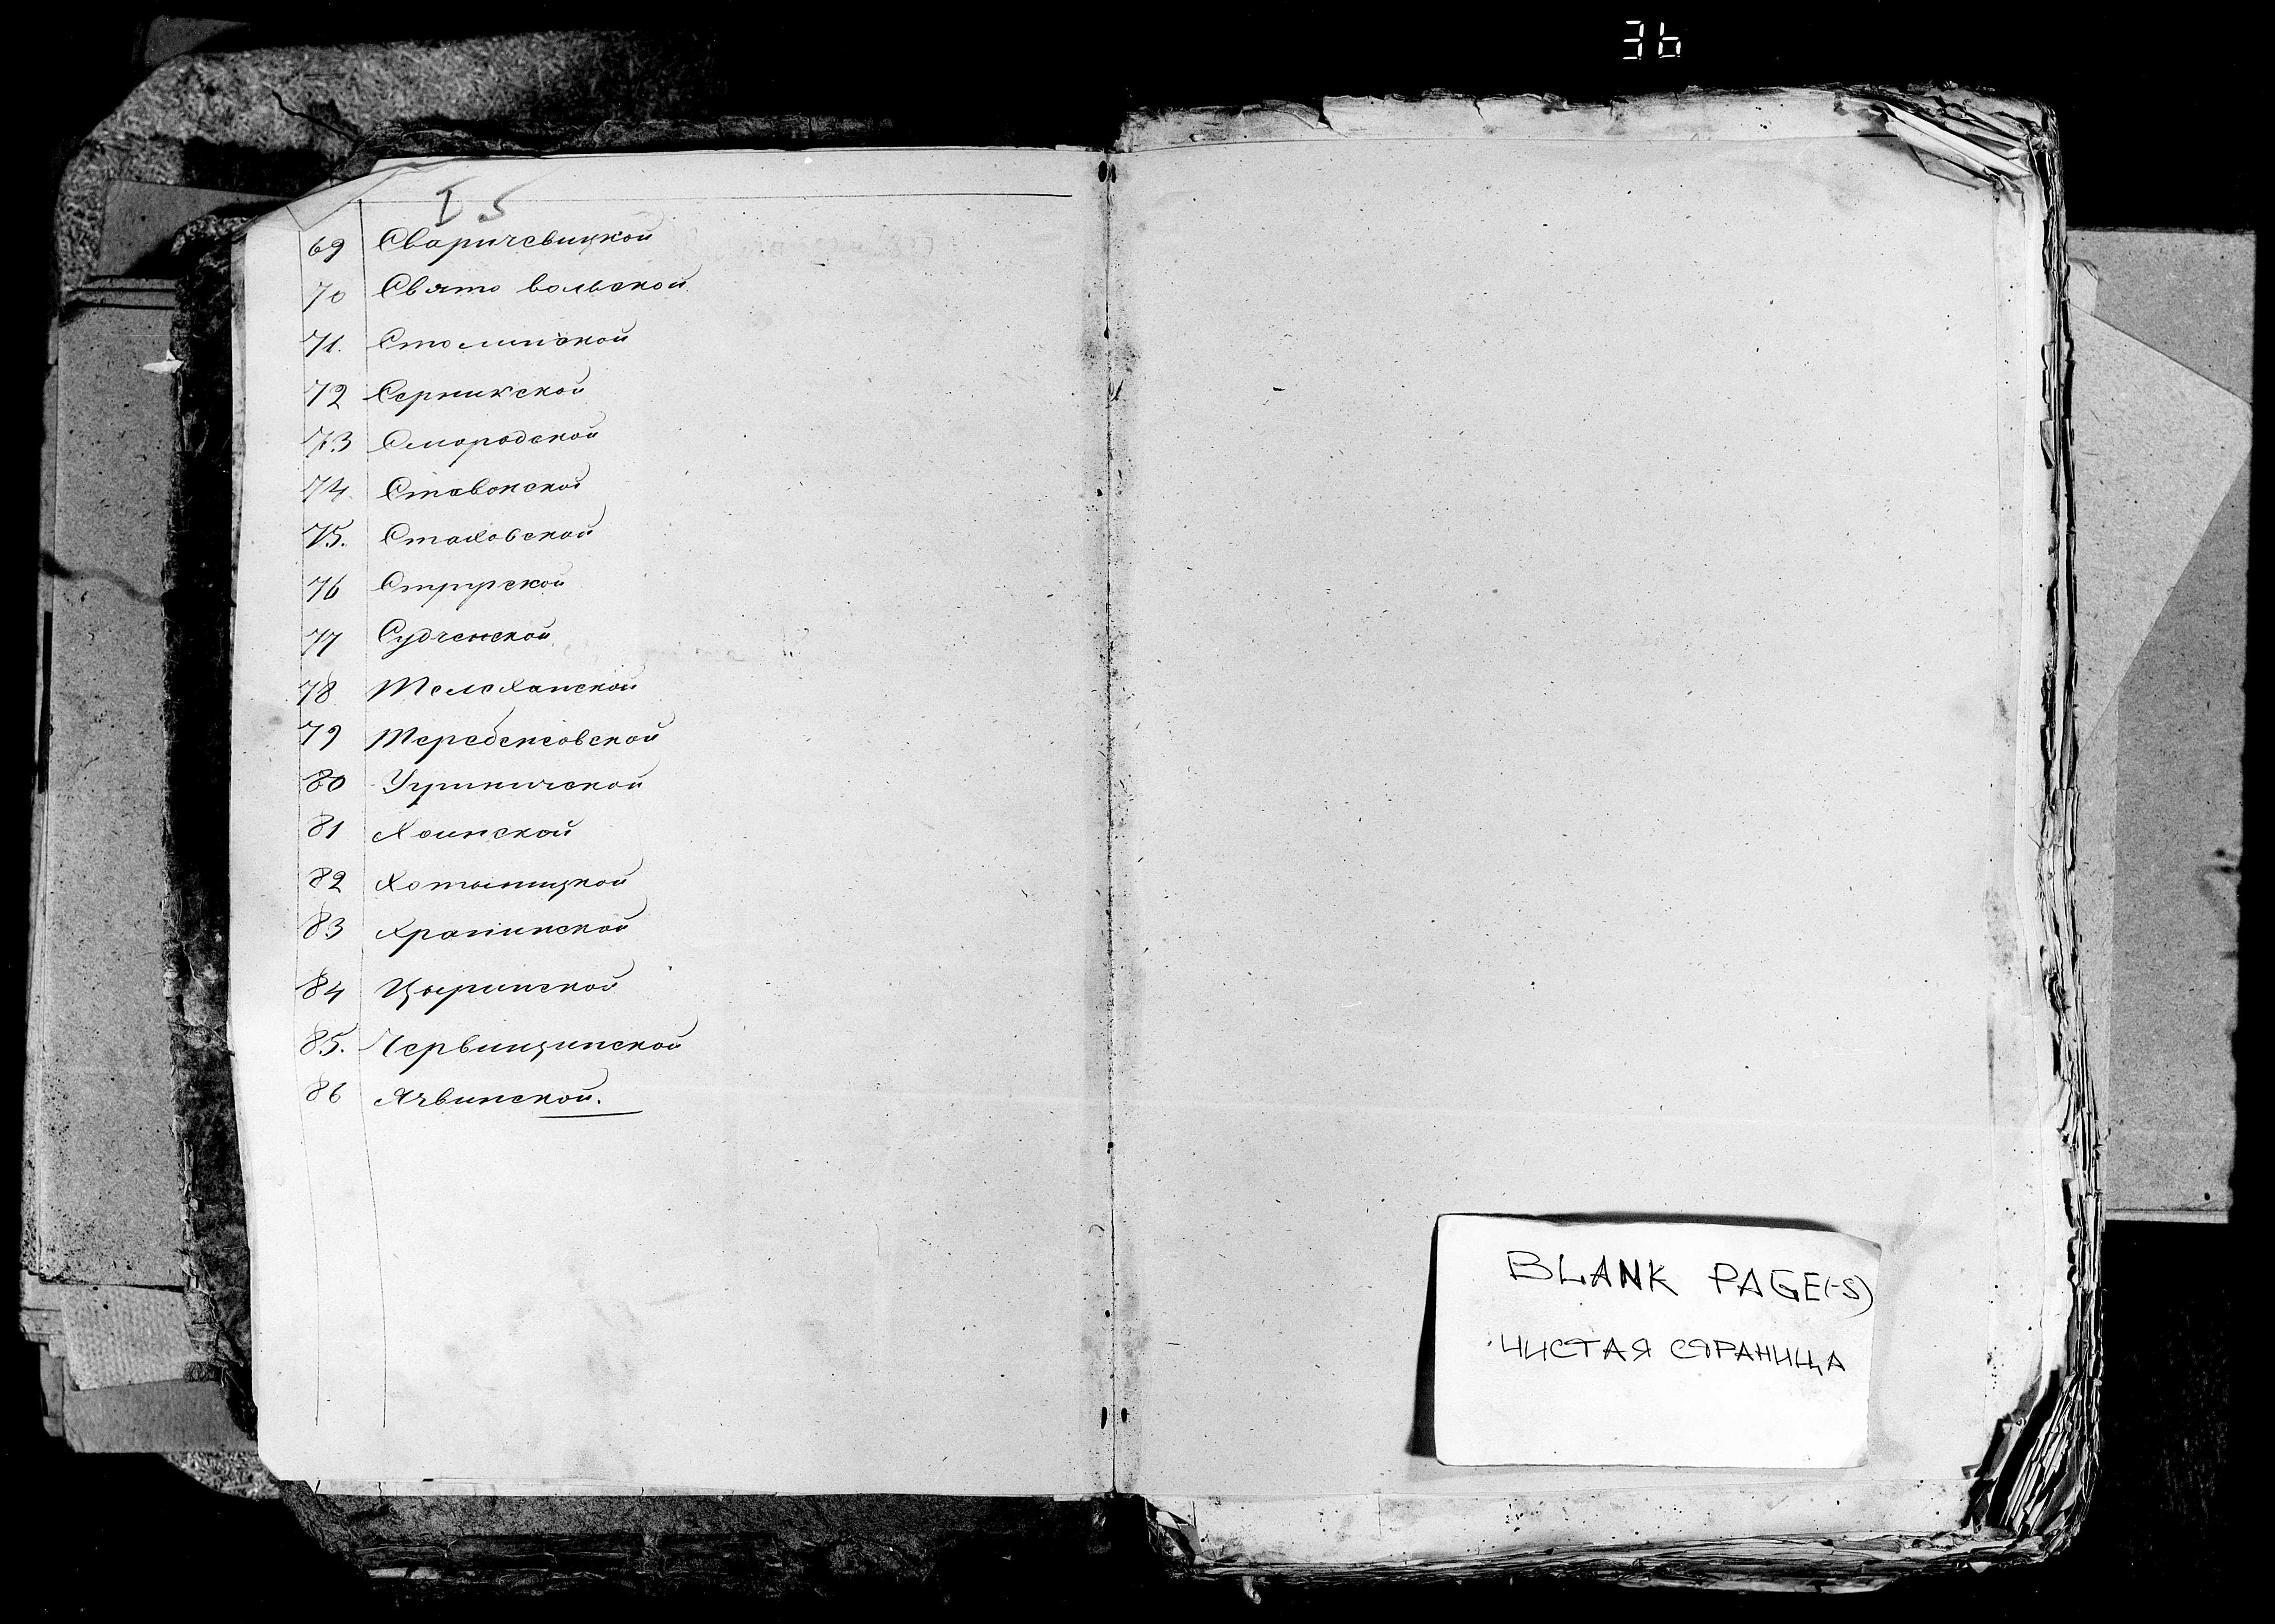 36
I 5
69 Сваричевицкой
70 Свято вольской
71. Столинской
72 Серникской
73 Смородской
74. Ставокской
75. Стаховской
76 Струрской
77 Судченской
78 Телеханской
79 Теребежовской
80 Угриничской
81 Хоинской
82 Хотыницкой
83 Храпинской
84 Цыринской
85. Червищинской
86 Ячвинской.
BLANK PAGE(-S)
ЧИСТАЯ СТРАНИЦА